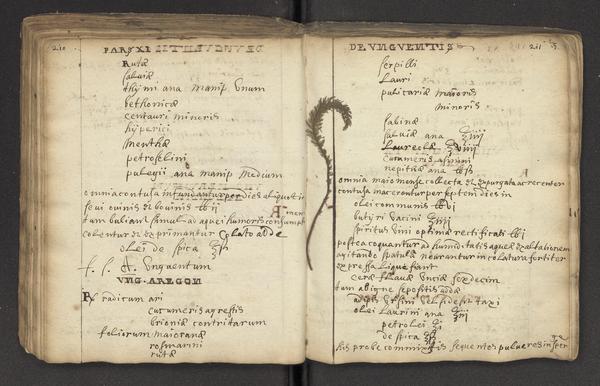 210
PARS XI DE UNGUENTIS
Rutæ
salviæ
thymi ana manip Unum
bethonicæ
centauri minoris
hyperici
menthæ
petroselini
pulegii ana manip medium
omnia contusa infundantur per dies aliquot in
sevi ovini et bovini ℔ ij
tum buliant simul
colentur et exprimantur Colato adde
olei de spica ℥
f. s. A. Unguentum
UNG. AREGON
℞ radicum ari
cucumeris agrestis
brioniæ contritarum
foliorum maioranæ
rosmarini
rutæ
DE UNGUENTIS
211
serpilli
Lauri
pulicariæ maioris
minoris
sabinæ
salviæ ana ℥iiij
Laureolæ ℥viiij
cucumeris asinini
nepitæ ana ℔
omnia maio mense collecta et expurgata recenter
contusa macerentur per septem dies in
olei communis ℔ vi
butyri vacini ℥iiij
spiritus vini optime rectificati ℔ j
postea coquantur ad humiditatis aqueæ exalationem
agitando spatula in colatura fortiter
expressa liquefiant
ceræ flavæ unciæ sexdecim
tum ab igne sepositis addæ
adipis Ursini vel taxi
olei Laurini ana ℥iij
petrolei ℥j
de spica ℥
his probe commixtis sequentes pulveres insper